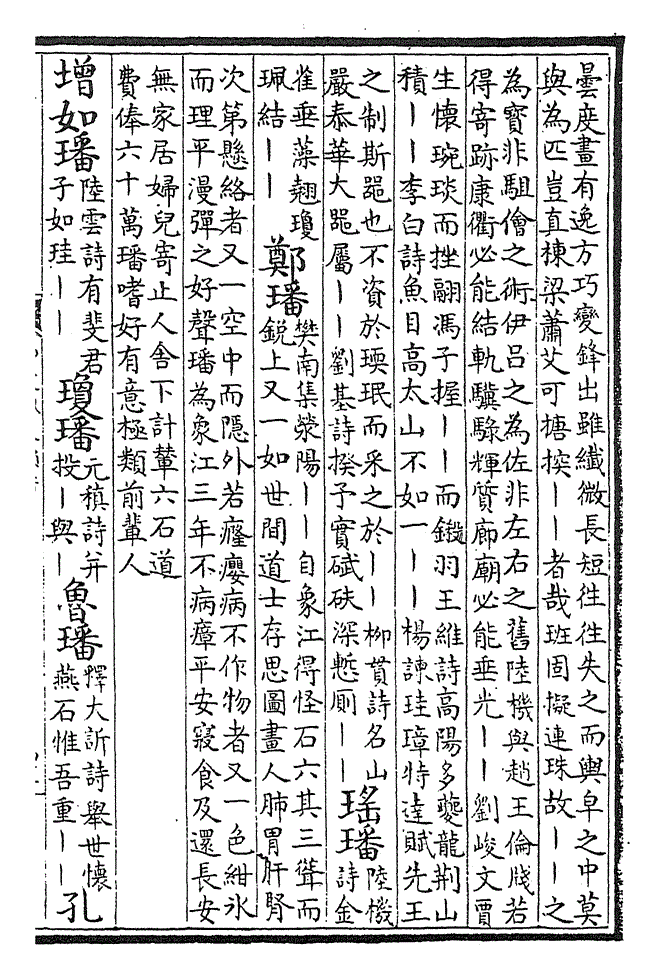 曇度畫有逸方巧變鋒出雖纖微長短徃徃失之而輿皁之中莫
與為匹豈真棟梁蕭艾可搪揬丨丨者哉班固擬連珠故丨丨之
為寳非駔儈之術伊吕之為佐非左右之舊陸機與趙王倫牋若
得寄跡康衢必能結軌驥騄輝質廊廟必能垂光丨丨劉峻文賈
生懷琬琰而挫翮馮子握丨丨而鎩羽王維詩高陽多夔龍荆山
積丨丨李白詩魚目高太山不如一丨丨楊諫珪璋特達賦先王
之制斯噐也不資於瑌珉而采之於丨丨柳貫詩名山
嚴泰華大噐屬丨丨劉基詩揆予實碔砆深慙厠丨丨
瑤璠
陸機
詩金
雀垂藻翹瓊
珮結丨丨
鄭璠
樊南集滎陽丨丨自象江得怪石六其三聳而
銳上又一如世間道士存思圖畫人肺胃肝腎
次第懸絡者又一空中而隱外若癃癭病不作物者又一色紺氷
而理平漫彈之好聲璠為象江三年不病瘴平安寢食及還長安
無家居婦兒寄止人舍下計輦六石道
費俸六十萬璠嗜好有意極類前輩人
增如璠
陸雲詩有斐君
子如珪丨丨
瓊璠
元稹詩并
投丨與丨
魯璠
釋大訢詩舉世懷
燕石惟吾重丨丨
孔